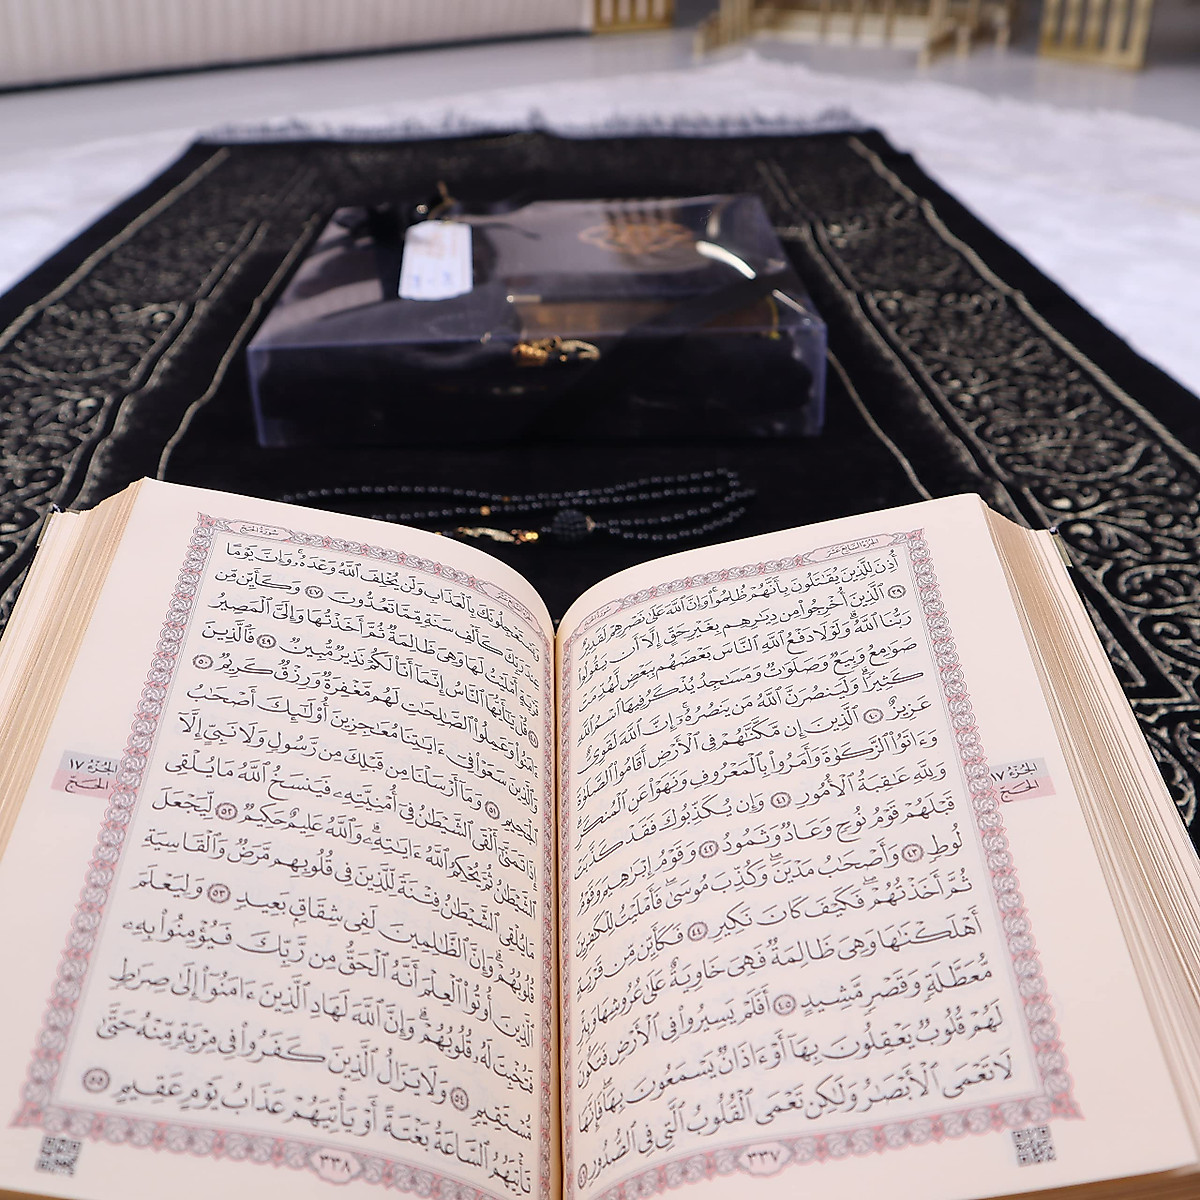 الجُزْءُ السَّابِعَ عَشَرَ
سُورَةُ الحَجِّ
أُذِنَ لِلَّذِينَ يُقَٰتَلُونَ بِأَنَّهُمْ ظُلِمُواْۚ وَإِنَّ ٱللَّهَ عَلَىٰ نَصْرِهِمْ لَقَدِيرٌ
٣٩ ٱلَّذِينَ أُخْرِجُواْ مِن دِيَٰرِهِم بِغَيْرِ حَقٍّ إِلَّآ أَن يَقُولُواْ
رَبُّنَا ٱللَّهُۗ وَلَوْلَا دَفْعُ ٱللَّهِ ٱلنَّاسَ بَعْضَهُم بِبَعْضٍ لَّهُدِّمَتْ
صَوَٰمِعُ وَبِيَعٌ وَصَلَوَٰتٌ وَمَسَٰجِدُ يُذْكَرُ فِيهَا ٱسْمُ ٱللَّهِ
كَثِيرًاۗ وَلَيَنصُرَنَّ ٱللَّهُ مَن يَنصُرُهُۥٓۗ إِنَّ ٱللَّهَ لَقَوِيٌّ
عَزِيزٌ ٤٠ ٱلَّذِينَ إِن مَّكَّنَّٰهُمْ فِى ٱلْأَرْضِ أَقَامُواْ ٱلصَّلَوٰةَ
وَءَاتَوُاْ ٱلزَّكَوٰةَ وَأَمَرُواْ بِٱلْمَعْرُوفِ وَنَهَوْاْ عَنِ ٱلْمُنكَرِۗ
وَلِلَّهِ عَٰقِبَةُ ٱلْأُمُورِ ٤١ وَإِن يُكَذِّبُوكَ فَقَدْ كَذَّبَتْ
قَبْلَهُمْ قَوْمُ نُوحٍ وَعَادٌ وَثَمُودُ ٤٢ وَقَوْمُ إِبْرَٰهِيمَ وَقَوْمُ
لُوطٍ ٤٣ وَأَصْحَٰبُ مَدْيَنَۖ وَكُذِّبَ مُوسَىٰۖ فَأَمْلَيْتُ لِلْكَٰفِرِينَ
ثُمَّ أَخَذْتُهُمْۖ فَكَيْفَ كَانَ نَكِيرِ ٤٤ فَكَأَيِّن مِّن قَرْيَةٍ
أَهْلَكْنَٰهَا وَهِىَ ظَالِمَةٌ فَهِىَ خَاوِيَةٌ عَلَىٰ عُرُوشِهَا وَبِئْرٍ
مُّعَطَّلَةٍ وَقَصْرٍ مَّشِيدٍ ٤٥ أَفَلَمْ يَسِيرُواْ فِى ٱلْأَرْضِ فَتَكُونَ
لَهُمْ قُلُوبٌ يَعْقِلُونَ بِهَآ أَوْ ءَاذَانٌ يَسْمَعُونَ بِهَاۖ فَإِنَّهَا
لَا تَعْمَى ٱلْأَبْصَٰرُ وَلَٰكِن تَعْمَى ٱلْقُلُوبُ ٱلَّتِى فِى ٱلصُّدُورِ ٤٦
الجُزْءُ ١٧
الحَجّ
٣٣٧
سُورَةُ الحَجِّ
وَيَسْتَعْجِلُونَكَ بِٱلْعَذَابِ وَلَن يُخْلِفَ ٱللَّهُ وَعْدَهُۥۚ وَإِنَّ يَوْمًا
عِندَ رَبِّكَ كَأَلْفِ سَنَةٍ مِّمَّا تَعُدُّونَ ٤٧ وَكَأَيِّن مِّن
قَرْيَةٍ أَمْلَيْتُ لَهَا وَهِىَ ظَالِمَةٌ ثُمَّ أَخَذْتُهَا وَإِلَىَّ ٱلْمَصِيرُ
٤٨ قُلْ يَٰٓأَيُّهَا ٱلنَّاسُ إِنَّمَآ أَنَا۠ لَكُمْ نَذِيرٌ مُّبِينٌ ٤٩ فَٱلَّذِينَ
ءَامَنُواْ وَعَمِلُواْ ٱلصَّٰلِحَٰتِ لَهُم مَّغْفِرَةٌ وَرِزْقٌ كَرِيمٌ ٥٠
وَٱلَّذِينَ سَعَوْاْ فِىٓ ءَايَٰتِنَا مُعَٰجِزِينَ أُوْلَٰٓئِكَ أَصْحَٰبُ
ٱلْجَحِيمِ ٥١ وَمَآ أَرْسَلْنَا مِن قَبْلِكَ مِن رَّسُولٍ وَلَا نَبِىٍّ إِلَّآ
إِذَا تَمَنَّىٰٓ أَلْقَى ٱلشَّيْطَٰنُ فِىٓ أُمْنِيَّتِهِۦ فَيَنسَخُ ٱللَّهُ مَا يُلْقِى
ٱلشَّيْطَٰنُ ثُمَّ يُحْكِمُ ٱللَّهُ ءَايَٰتِهِۦۗ وَٱللَّهُ عَلِيمٌ حَكِيمٌ ٥٢ لِّيَجْعَلَ
مَا يُلْقِى ٱلشَّيْطَٰنُ فِتْنَةً لِّلَّذِينَ فِى قُلُوبِهِم مَّرَضٌ وَٱلْقَاسِيَةِ
قُلُوبُهُمْۗ وَإِنَّ ٱلظَّٰلِمِينَ لَفِى شِقَاقٍۭ بَعِيدٍ ٥٣ وَلِيَعْلَمَ
ٱلَّذِينَ أُوتُواْ ٱلْعِلْمَ أَنَّهُ ٱلْحَقُّ مِن رَّبِّكَ فَيُؤْمِنُواْ بِهِۦ
فَتُخْبِتَ لَهُۥ قُلُوبُهُمْۗ وَإِنَّ ٱللَّهَ لَهَادِ ٱلَّذِينَ ءَامَنُوٓاْ إِلَىٰ صِرَٰطٍ
مُّسْتَقِيمٍ ٥٤ وَلَا يَزَالُ ٱلَّذِينَ كَفَرُواْ فِى مِرْيَةٍ مِّنْهُ حَتَّىٰ
تَأْتِيَهُمُ ٱلسَّاعَةُ بَغْتَةً أَوْ يَأْتِيَهُمْ عَذَابُ يَوْمٍ عَقِيمٍ ٥٥
الجُزْءُ ١٧
الحَجّ
٣٣٨